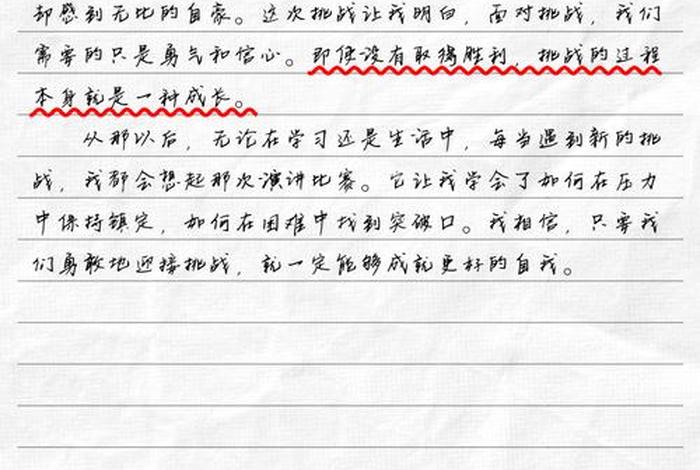 却感到无比的自豪。这次挑战让我明白，面对挑战，我们
需要的只是勇气和信心。即使没有取得胜利，挑战的过程
本身就是一种成长。
从那以后，无论在学习还是生活中，每当遇到新的挑
战，我都会想起那次演讲比赛。它让我学会了如何在压力
中保持镇定，如何在困难中找到突破口。我相信，只要我
们勇敢地迎接挑战，就一定能够成就更好的自我。